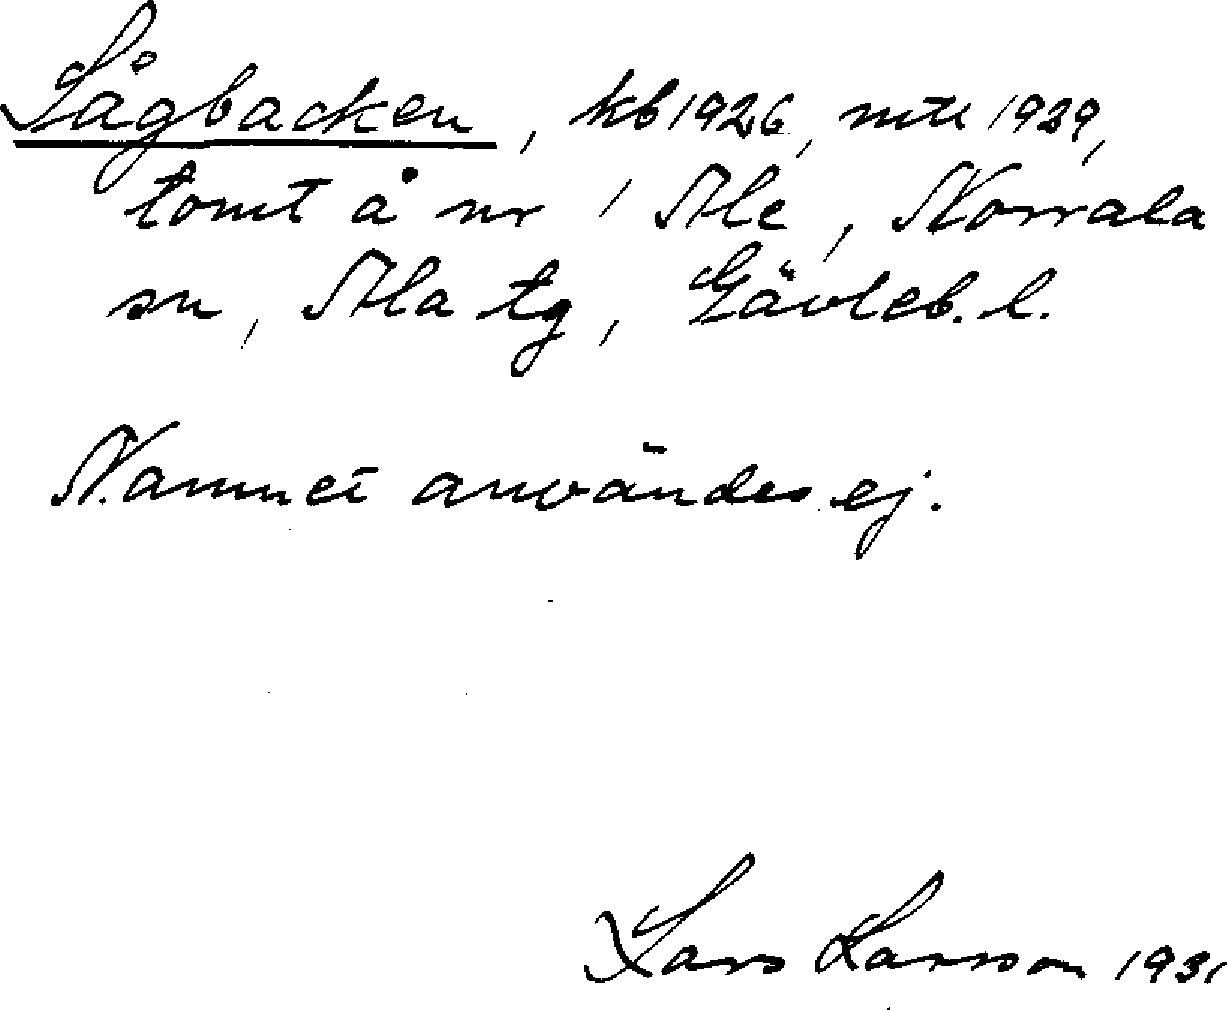 Sågbacken, kb 1926, mtl 1929,
tomt å nr 1 Ale, Norrala
sn, Ala tg, Gävleb. l.
Namnet användes ej.
Lars Larsson 1931